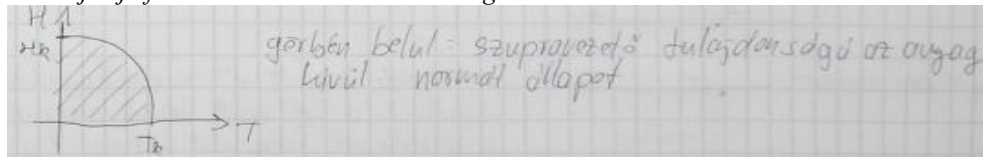 H
Hk
görbén belül: szupravezető tulajdonságú az anyag
kívül normál állapot
T
Tk